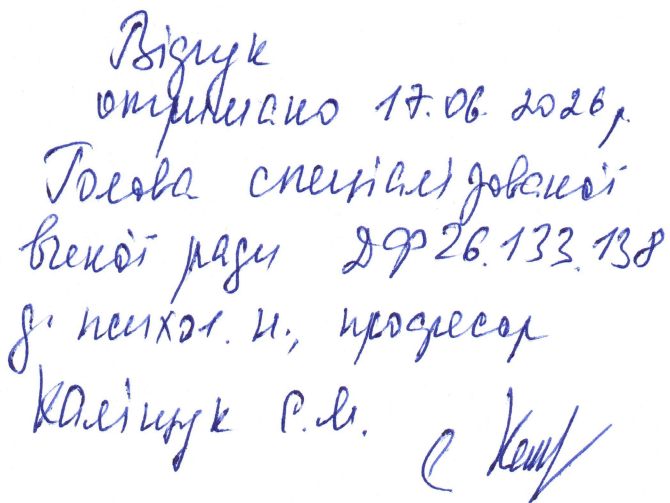 Відгук
отримано 17.06.2026 р.
Голова спеціалізованої
вченої ради ДФ 26.133.138
д. психол. н., професор
Каліщук С.М.